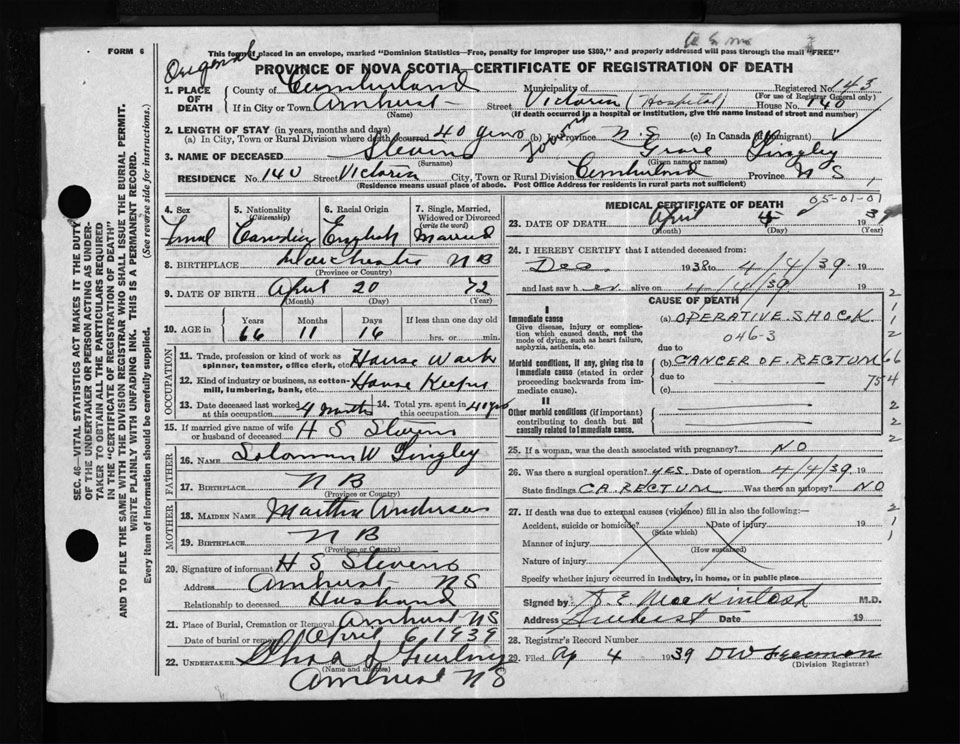 FORM 6
Original
This form if placed in an envelope, marked "Dominion Statistics—Free, penalty for improper use $300," and properly addressed will pass through the mail "FREE"
PROVINCE OF NOVA SCOTIA—CERTIFICATE OF REGISTRATION OF DEATH
1. PLACE OF DEATH County of Cumberland Municipality of Registered No. 143
(For use of Registrar General only)
If in City or Town Amherst Street Victoria (Hospital) House No. 140
(Name) (If death occurred in a hospital or institution, give the name instead of street and number)
2. LENGTH OF STAY (in years, months and days)
(a) In City, Town or Rural Division where death occurred 40 years (b) in Province N.S (c) In Canada (if immigrant)
3. NAME OF DECEASED Stevens Grace Lingley
(Surname) (Given name or names)
RESIDENCE No. 140 Street Victoria City, Town or Rural Division Cumberland Province N S
(Residence means usual place of abode. Post Office Address for residents in rural parts not sufficient)
4. Sex 5. Nationality (Citizenship) 6. Racial Origin 7. Single, Married, Widowed or Divorced (write the word)
Canadian English Married
8. BIRTHPLACE Dorchester N B
(Province or Country)
9. DATE OF BIRTH April 20 72
(Month) (Day) (Year)
10. AGE in Years Months Days If less than one day old
66 11 16 hrs. or min.
OCCUPATION
11. Trade, profession or kind of work as spinner, teamster, office clerk, etc. House Work
12. Kind of industry or business, as cotton-mill, lumbering, bank, etc. House Keeper
13. Date deceased last worked at this occupation 4 Months 14. Total yrs. spent in this occupation 40 yrs
15. If married give name of wife or husband of deceased H S Stevens
FATHER
16. NAME Solomon W Lingley
17. BIRTHPLACE N B
(Province or Country)
MOTHER
18. MAIDEN NAME Martha Anderson
19. BIRTHPLACE N B
(Province or Country)
20. Signature of informant H S Stevens
Address Amherst N S
Relationship to deceased Husband
21. Place of Burial, Cremation or Removal Amherst NS
Date of burial or removal April 6 1939
22. UNDERTAKER
(Name and address)
Amherst N S
MEDICAL CERTIFICATE OF DEATH
05-01-01
23. DATE OF DEATH April 5 1939
(Month) (Day) (Year)
24. I HEREBY CERTIFY that I attended deceased from:
Dec. 1938 to 4/4/39 19
and last saw h er alive on 4/4/39 19
CAUSE OF DEATH
I
Immediate cause
Give disease, injury or complication which caused death, not the mode of dying, such as heart failure, asphyxia, asthenia, etc.
(a) OPERATIVE SHOCK
046-3
due to
Morbid conditions, if any, giving rise to immediate cause (stated in order proceeding backwards from immediate cause).
(b) CANCER OF RECTUM
due to
(c)
II
Other morbid conditions (if important) contributing to death but not causally related to immediate cause.
25. If a woman, was the death associated with pregnancy? NO
26. Was there a surgical operation? YES Date of operation 4/4/39 19
State findings CA. RECTUM Was there an autopsy? NO
27. If death was due to external causes (violence) fill in also the following:—
Accident, suicide or homicide? Date of injury 19
(State which)
Manner of injury
(How sustained)
Nature of injury
Specify whether injury occurred in industry, in home, or in public place
Signed by A. E. Mackintosh M.D.
Address Amherst Date 19
28. Registrar's Record Number
29. Filed Ap 4 1939 DW Freeman
(Division Registrar)
SEC. 46—VITAL STATISTICS ACT MAKES IT THE DUTY OF THE UNDERTAKER OR PERSON ACTING AS UNDERTAKER TO OBTAIN ALL THE PARTICULARS REQUIRED IN THE "CERTIFICATE OF REGISTRATION OF DEATH"
AND TO FILE THE SAME WITH THE DIVISION REGISTRAR WHO SHALL ISSUE THE BURIAL PERMIT.
WRITE PLAINLY WITH UNFADING INK. THIS IS A PERMANENT RECORD.
Every item of information should be carefully supplied. (See reverse side for instructions.)